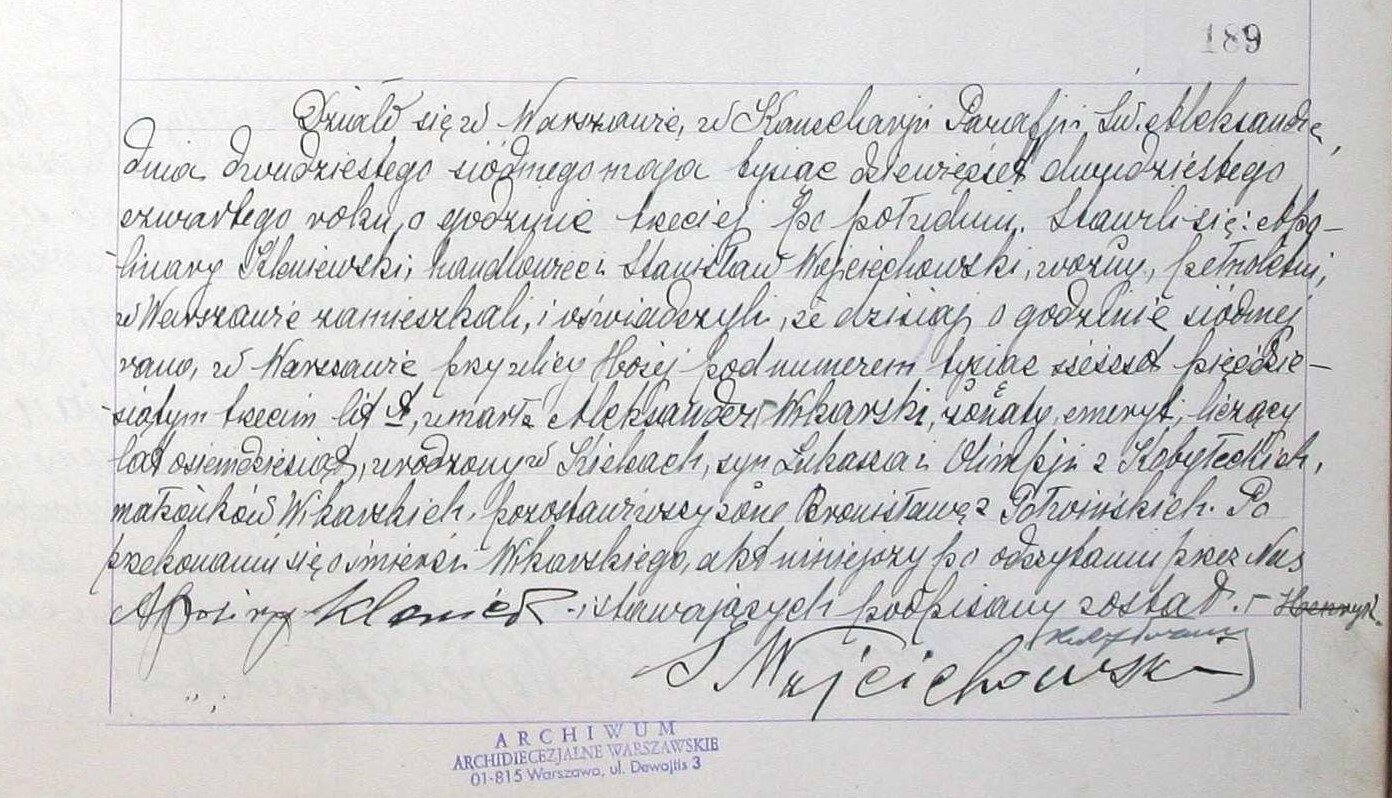 189
Działo się w Warszawie, w Kancelarji Parafji Św. Aleksandra,
dnia dwudziestego siódmego maja tysiąc dziewięćset dwudziestego
czwartego roku, o godzinie trzeciej po południu. Stawili się: Apo-
linary Kleniewski, handlowiec i Stanisław Wojciechowski, woźny, pełnoletni,
w Warszawie zamieszkali, i oświadczyli, że dzisiaj o godzinie siódmej
rano, w Warszawie przy ulicy Hożej pod numerem tysiąc sześćset pięćdzie-
siątym trzecim lit A, umarł Aleksander Wikarski, żonaty, emeryt, liczący
lat osiemdziesiąt, urodzony w Kielcach, syn Łukasza i Olimpji z Kobyłeckich,
małżonków Wikarskich, pozostawiwszy żonę Bronisławę z Potwińskich. Po
przekonaniu się o śmierci Wikarskiego, akt niniejszy po odczytaniu przez Nas
i stawających podpisany został.
S Wojciechowski
ARCHIWUM
ARCHIDIECEZJALNE WARSZAWSKIE
01-815 Warszawa, ul. Dewajtis 3